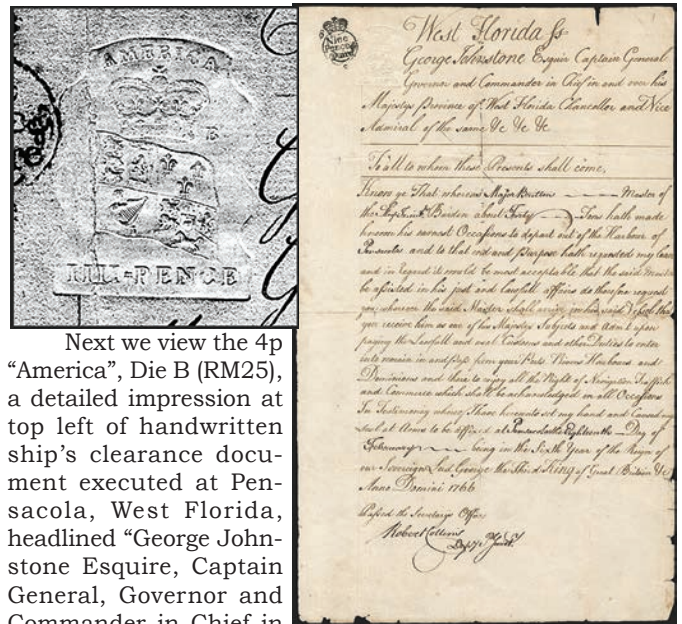 AMERICA
IIII=PENCE
Next we view the 4p
“America”, Die B (RM25),
a detailed impression at
top left of handwritten
ship’s clearance docu-
ment executed at Pen-
sacola, West Florida,
headlined “George John-
stone Esquire, Captain
General, Governor and
Commander in Chief in
West Florida Ss
George Johnstone Esquir Captain General
Governor and Commander in Chief in and over his
Majestys Province of West Florida Chancellor and Vice
Admiral of the same &c &c &c
To all to whom these Presents shall come.
Know ye That whereas Major Britton Master of
the Burden about Forty Tons hath made
known his earnest Occasions to depart out of the Harbour of
Pensacola and to that end and Purpose hath requested my leave
and in regard it would be most acceptable that the said Master
be assisted in his just and lawfull affairs do therefore request
you, wherever the said Master shall arrive, in his said Vessel that
you receive him as one of his Majestys Subjects and Admit upon
paying the Lawfull and usual Customs and other Duties to enter
into remain in and pass from your Ports Towns Harbours and
Dominions and there to enjoy all the Right of Navigation Traffick
and Commerce which shall be acknowledged in all Occasions
In Testimony whereof I have hereunto set my hand and Caused my
Seal at Arms to be affixed at Pensacola the Eighteenth Day of
February being in the Sixth Year of the Reign of
our Sovereign Lord George the Third King of Great Britain &c
Anno Domini 1766
Passed the Secretarys Office
Robert Collins